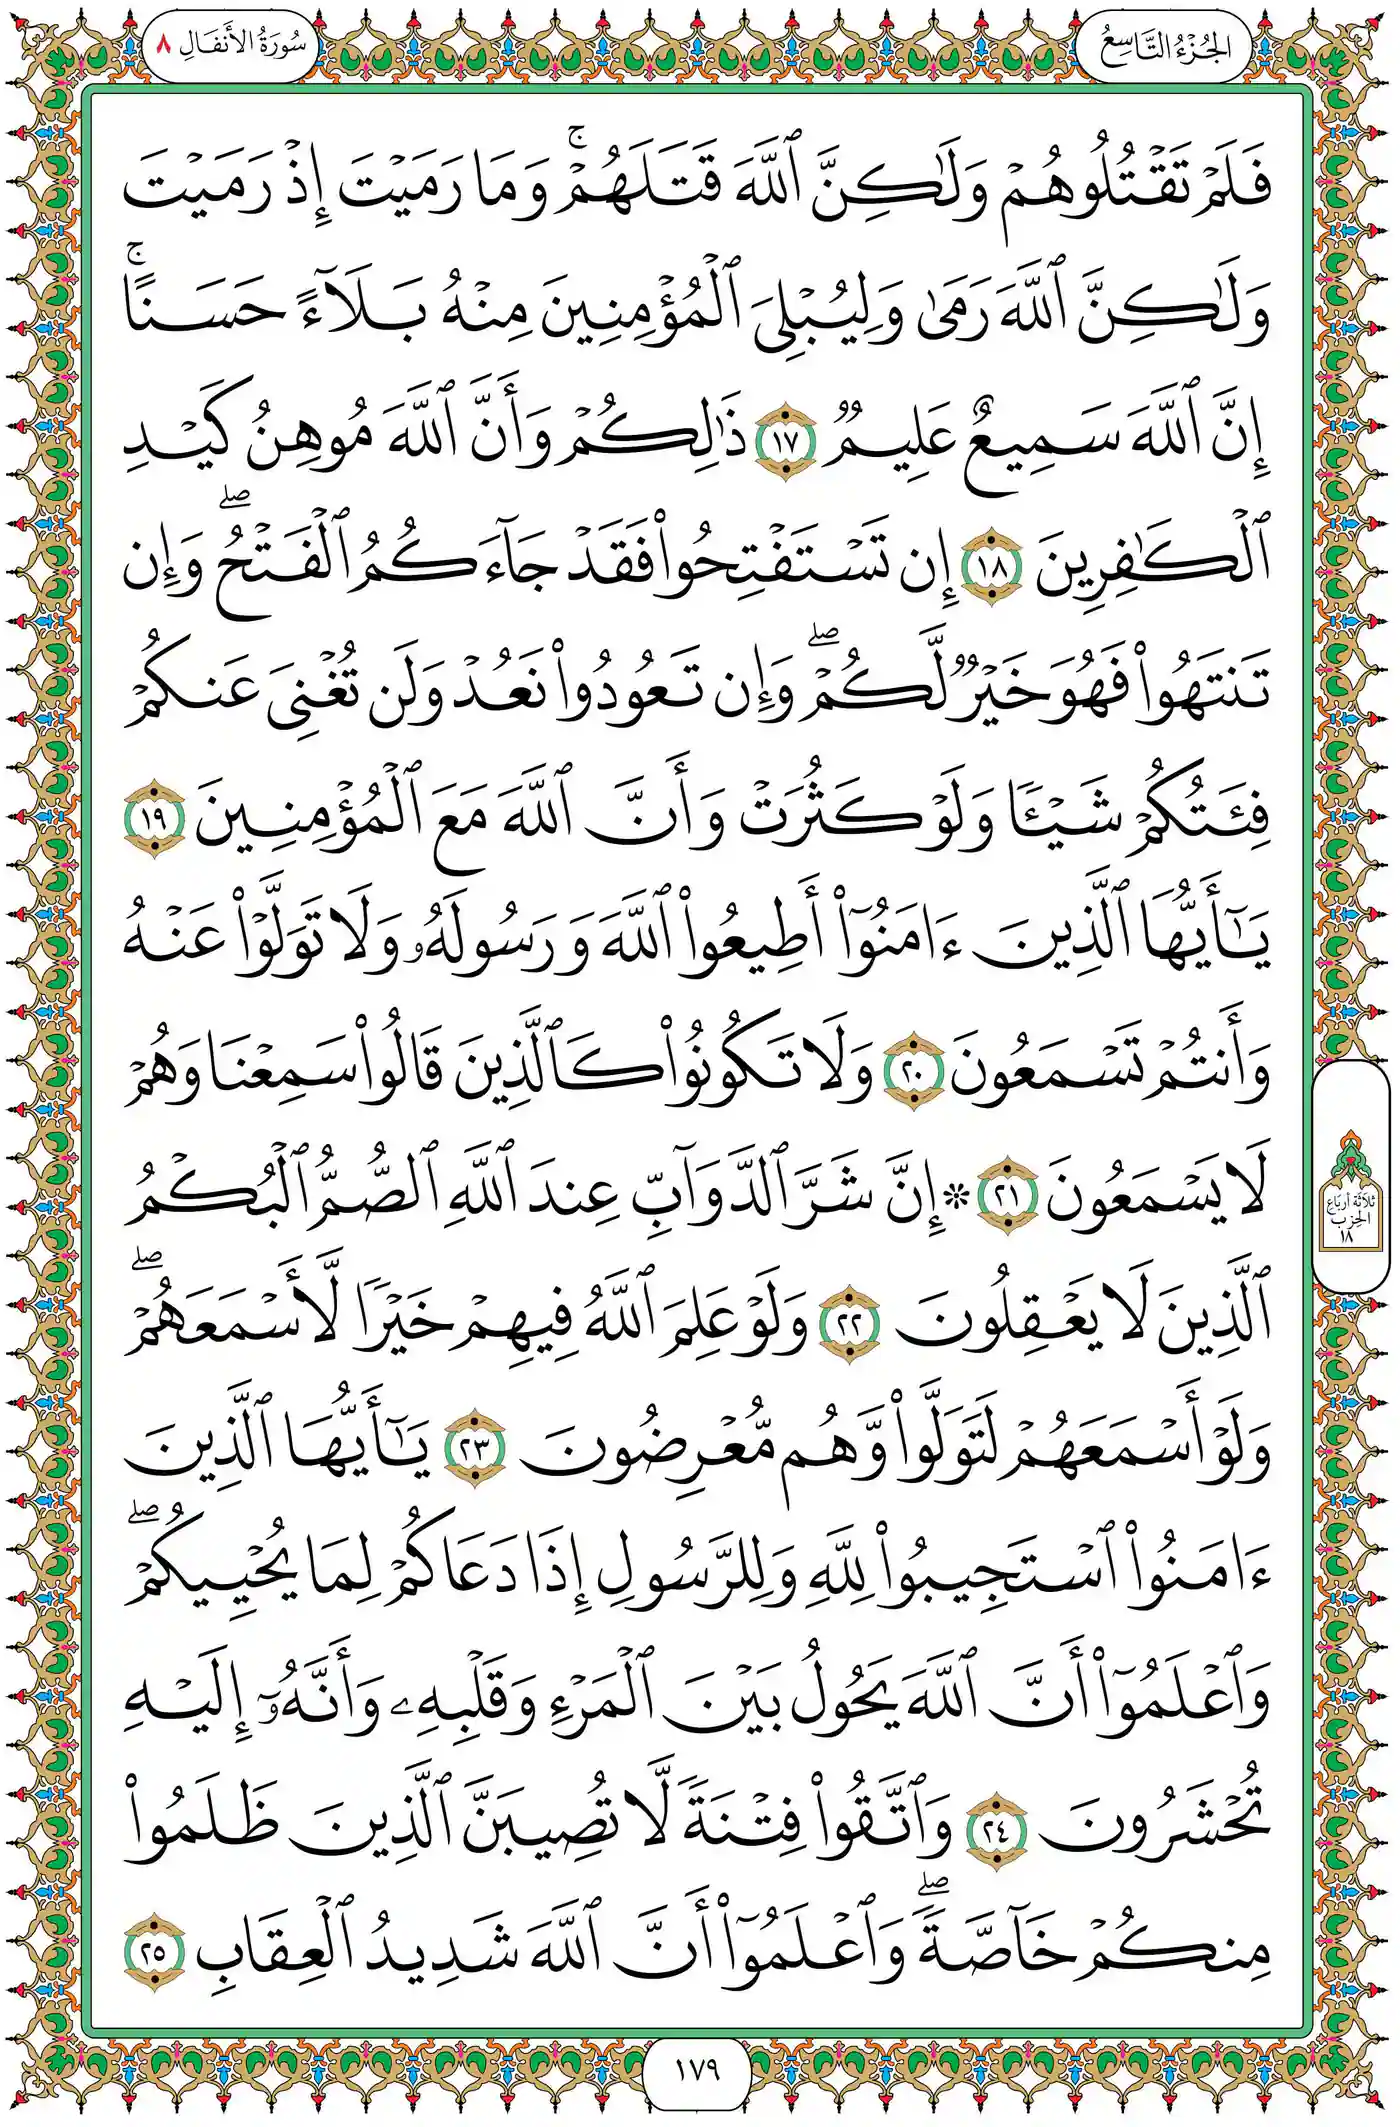 الجُزْءُ التَّاسِعُ
سُورَةُ الأَنفَالِ ٨
فَلَمْ تَقْتُلُوهُمْ وَلَٰكِنَّ ٱللَّهَ قَتَلَهُمْۚ وَمَا رَمَيْتَ إِذْ رَمَيْتَ
وَلَٰكِنَّ ٱللَّهَ رَمَىٰ وَلِيُبْلِىَ ٱلْمُؤْمِنِينَ مِنْهُ بَلَآءً حَسَنًاۚ
إِنَّ ٱللَّهَ سَمِيعٌ عَلِيمٌ ١٧ ذَٰلِكُمْ وَأَنَّ ٱللَّهَ مُوهِنُ كَيْدِ
ٱلْكَٰفِرِينَ ١٨ إِن تَسْتَفْتِحُوا۟ فَقَدْ جَآءَكُمُ ٱلْفَتْحُۖ وَإِن
تَنتَهُوا۟ فَهُوَ خَيْرٌ لَّكُمْۖ وَإِن تَعُودُوا۟ نَعُدْ وَلَن تُغْنِىَ عَنكُمْ
فِئَتُكُمْ شَيْـًٔا وَلَوْ كَثُرَتْ وَأَنَّ ٱللَّهَ مَعَ ٱلْمُؤْمِنِينَ ١٩
يَٰٓأَيُّهَا ٱلَّذِينَ ءَامَنُوٓا۟ أَطِيعُوا۟ ٱللَّهَ وَرَسُولَهُۥ وَلَا تَوَلَّوْا۟ عَنْهُ
وَأَنتُمْ تَسْمَعُونَ ٢٠ وَلَا تَكُونُوا۟ كَٱلَّذِينَ قَالُوا۟ سَمِعْنَا وَهُمْ
لَا يَسْمَعُونَ ٢١ ۞ إِنَّ شَرَّ ٱلدَّوَآبِّ عِندَ ٱللَّهِ ٱلصُّمُّ ٱلْبُكْمُ
ثلاثة أرباع
الحزب
١٨
ٱلَّذِينَ لَا يَعْقِلُونَ ٢٢ وَلَوْ عَلِمَ ٱللَّهُ فِيهِمْ خَيْرًا لَّأَسْمَعَهُمْۖ
وَلَوْ أَسْمَعَهُمْ لَتَوَلَّوا۟ وَّهُم مُّعْرِضُونَ ٢٣ يَٰٓأَيُّهَا ٱلَّذِينَ
ءَامَنُوا۟ ٱسْتَجِيبُوا۟ لِلَّهِ وَلِلرَّسُولِ إِذَا دَعَاكُمْ لِمَا يُحْيِيكُمْۖ
وَٱعْلَمُوٓا۟ أَنَّ ٱللَّهَ يَحُولُ بَيْنَ ٱلْمَرْءِ وَقَلْبِهِۦ وَأَنَّهُۥٓ إِلَيْهِ
تُحْشَرُونَ ٢٤ وَٱتَّقُوا۟ فِتْنَةً لَّا تُصِيبَنَّ ٱلَّذِينَ ظَلَمُوا۟
مِنكُمْ خَآصَّةًۖ وَٱعْلَمُوٓا۟ أَنَّ ٱللَّهَ شَدِيدُ ٱلْعِقَابِ ٢٥
١٧٩